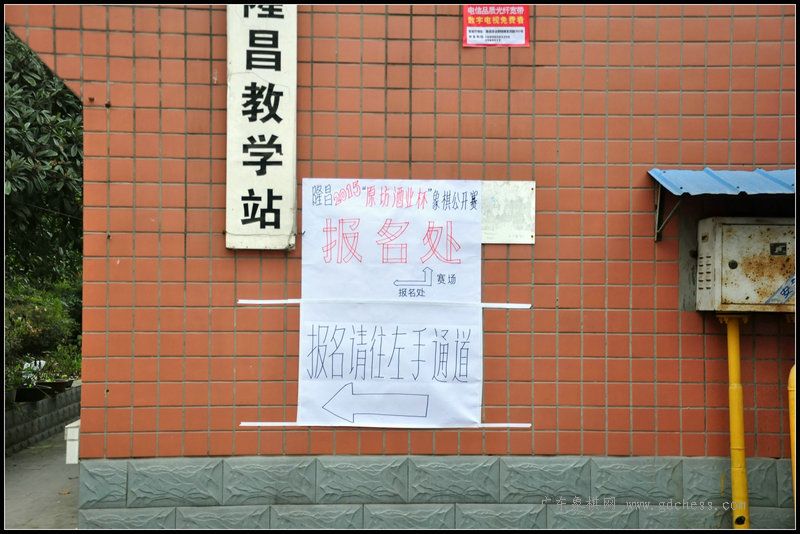 隆昌教学站
电信品质光纤宽带
数字电视免费看
隆昌2015“原坊酒业杯”象棋公开赛
报名处
赛场
报名处
报名请往左手通道
广东象棋网 www.gdchess.com